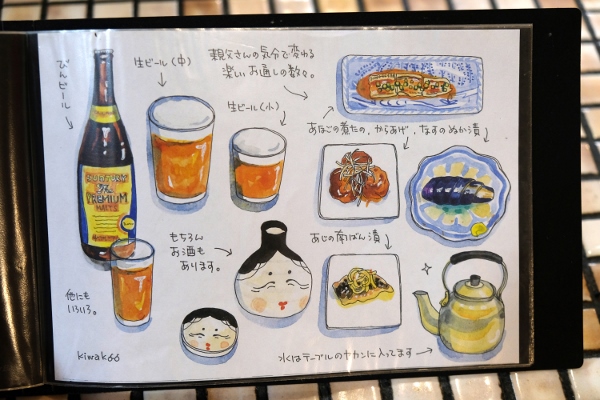 びんビール
生ビール(中)
親父さんの気分で変わる
楽しいお通しの数々。
生ビール(小)
あなごの煮たの、からあげ、なすのぬか漬
SUNTORY
THE
PREMIUM
MALTS
もちろん
お酒も
あります。
あじの南ばん漬
他にも
いろいろ。
kiwakoo
水はテーブルのヤカンに入ってます